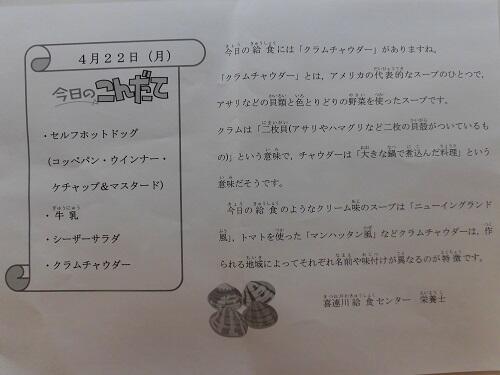 4月22日(月)
今日のこんだて
・セルフホットドッグ
(コッペパン・ウインナー・
ケチャップ&マスタード)
・牛乳
・シーザーサラダ
・クラムチャウダー
今日の給食には「クラムチャウダー」がありますね。
「クラムチャウダー」とは、アメリカの代表的なスープのひとつで、
アサリなどの貝類と色とりどりの野菜を使ったスープです。
クラムは「二枚貝(アサリやハマグリなど二枚の貝殻がついているも
の)」という意味で、チャウダーは「大きな鍋で煮込んだ料理」という
意味だそうです。
今日の給食のようなクリーム味のスープは「ニューイングランド
風」、トマトを使った「マンハッタン風」などクラムチャウダーは、作
られる地域によってそれぞれ名前や味付けが異なるのが特徴です。
喜連川給食センター 栄養士